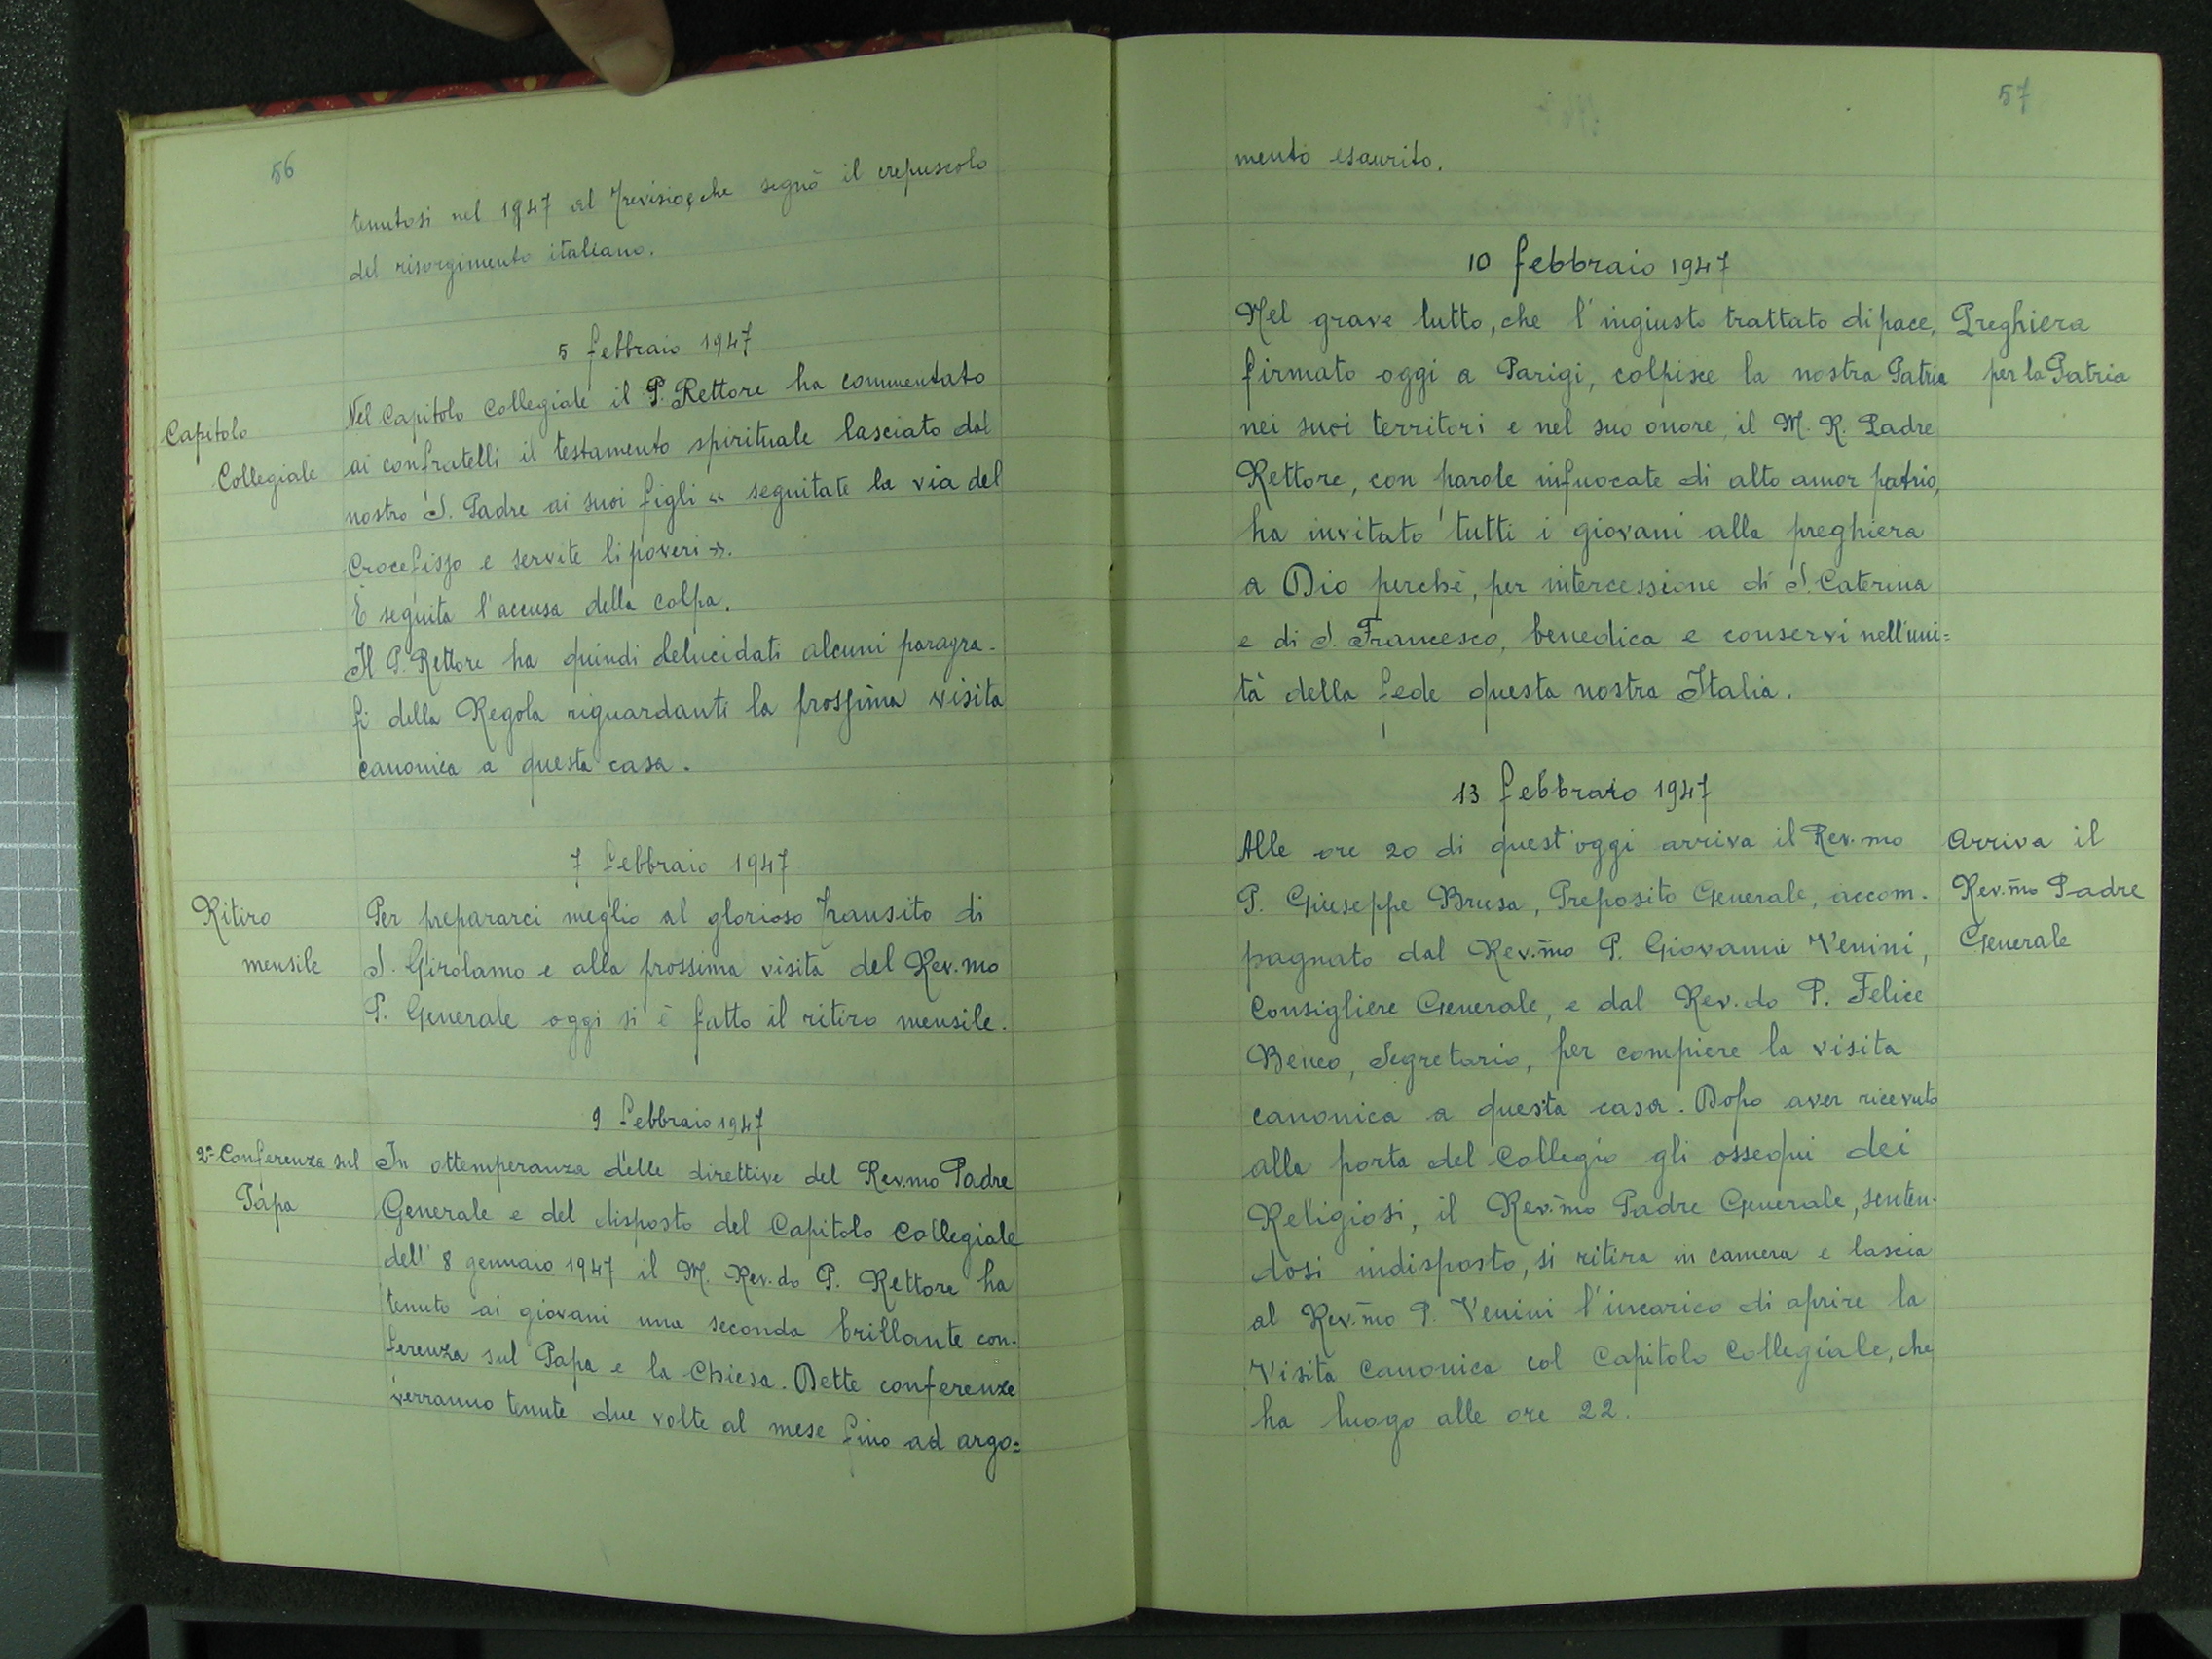 56
tenutosi nel 1947 al Trevisio, che segnò il crepuscolo
del risorgimento italiano.
5 febbraio 1947
Capitolo
Collegiale
Nel Capitolo Collegiale il P. Rettore ha commentato
ai confratelli il testamento spirituale lasciato dal
nostro S. Padre ai suoi figli « seguitate la via del
Crocefisso e servite li poveri ».
È seguita l'accusa della colpa.
Il P. Rettore ha quindi delucidati alcuni paragra-
fi della Regola riguardanti la prossima visita
canonica a questa casa.
7 febbraio 1947
Ritiro
mensile
Per prepararci meglio al glorioso transito di
S. Girolamo e alla prossima visita del Rev.mo
P. Generale oggi si è fatto il ritiro mensile.
9 febbraio 1947
2ª Conferenza sul
Papa
In ottemperanza delle direttive del Rev.mo Padre
Generale e del disposto del Capitolo Collegiale
dell' 8 gennaio 1947 il M. Rev.do P. Rettore ha
tenuto ai giovani una seconda brillante con-
ferenza sul Papa e la Chiesa. Dette conferenze
verranno tenute due volte al mese fino ad argo=
57
mento esaurito.
10 febbraio 1947
Preghiera
per la Patria
Nel grave lutto, che l'ingiusto trattato di pace,
firmato oggi a Parigi, colpisce la nostra Patria
nei suoi territori e nel suo onore, il M. R. Padre
Rettore, con parole infuocate di alto amor patrio,
ha invitato tutti i giovani alla preghiera
a Dio perchè, per intercessione di S. Caterina
e di S. Francesco, benedica e conservi nell'uni=
tà della fede questa nostra Italia.
13 febbraio 1947
Arriva il
Rev.mo Padre
Generale
Alle ore 20 di quest'oggi arriva il Rev.mo
P. Giuseppe Brusa, Preposito Generale, accom-
pagnato dal Rev.mo P. Giovanni Venini,
Consigliere Generale, e dal Rev.do P. Felice
Beneo, Segretario, per compiere la visita
canonica a questa casa. Dopo aver ricevuto
alla porta del Collegio gli ossequi dei
Religiosi, il Rev.mo Padre Generale, senten-
dosi indisposto, si ritira in camera e lascia
al Rev.mo P. Venini l'incarico di aprire la
Visita Canonica col Capitolo Collegiale, che
ha luogo alle ore 22.